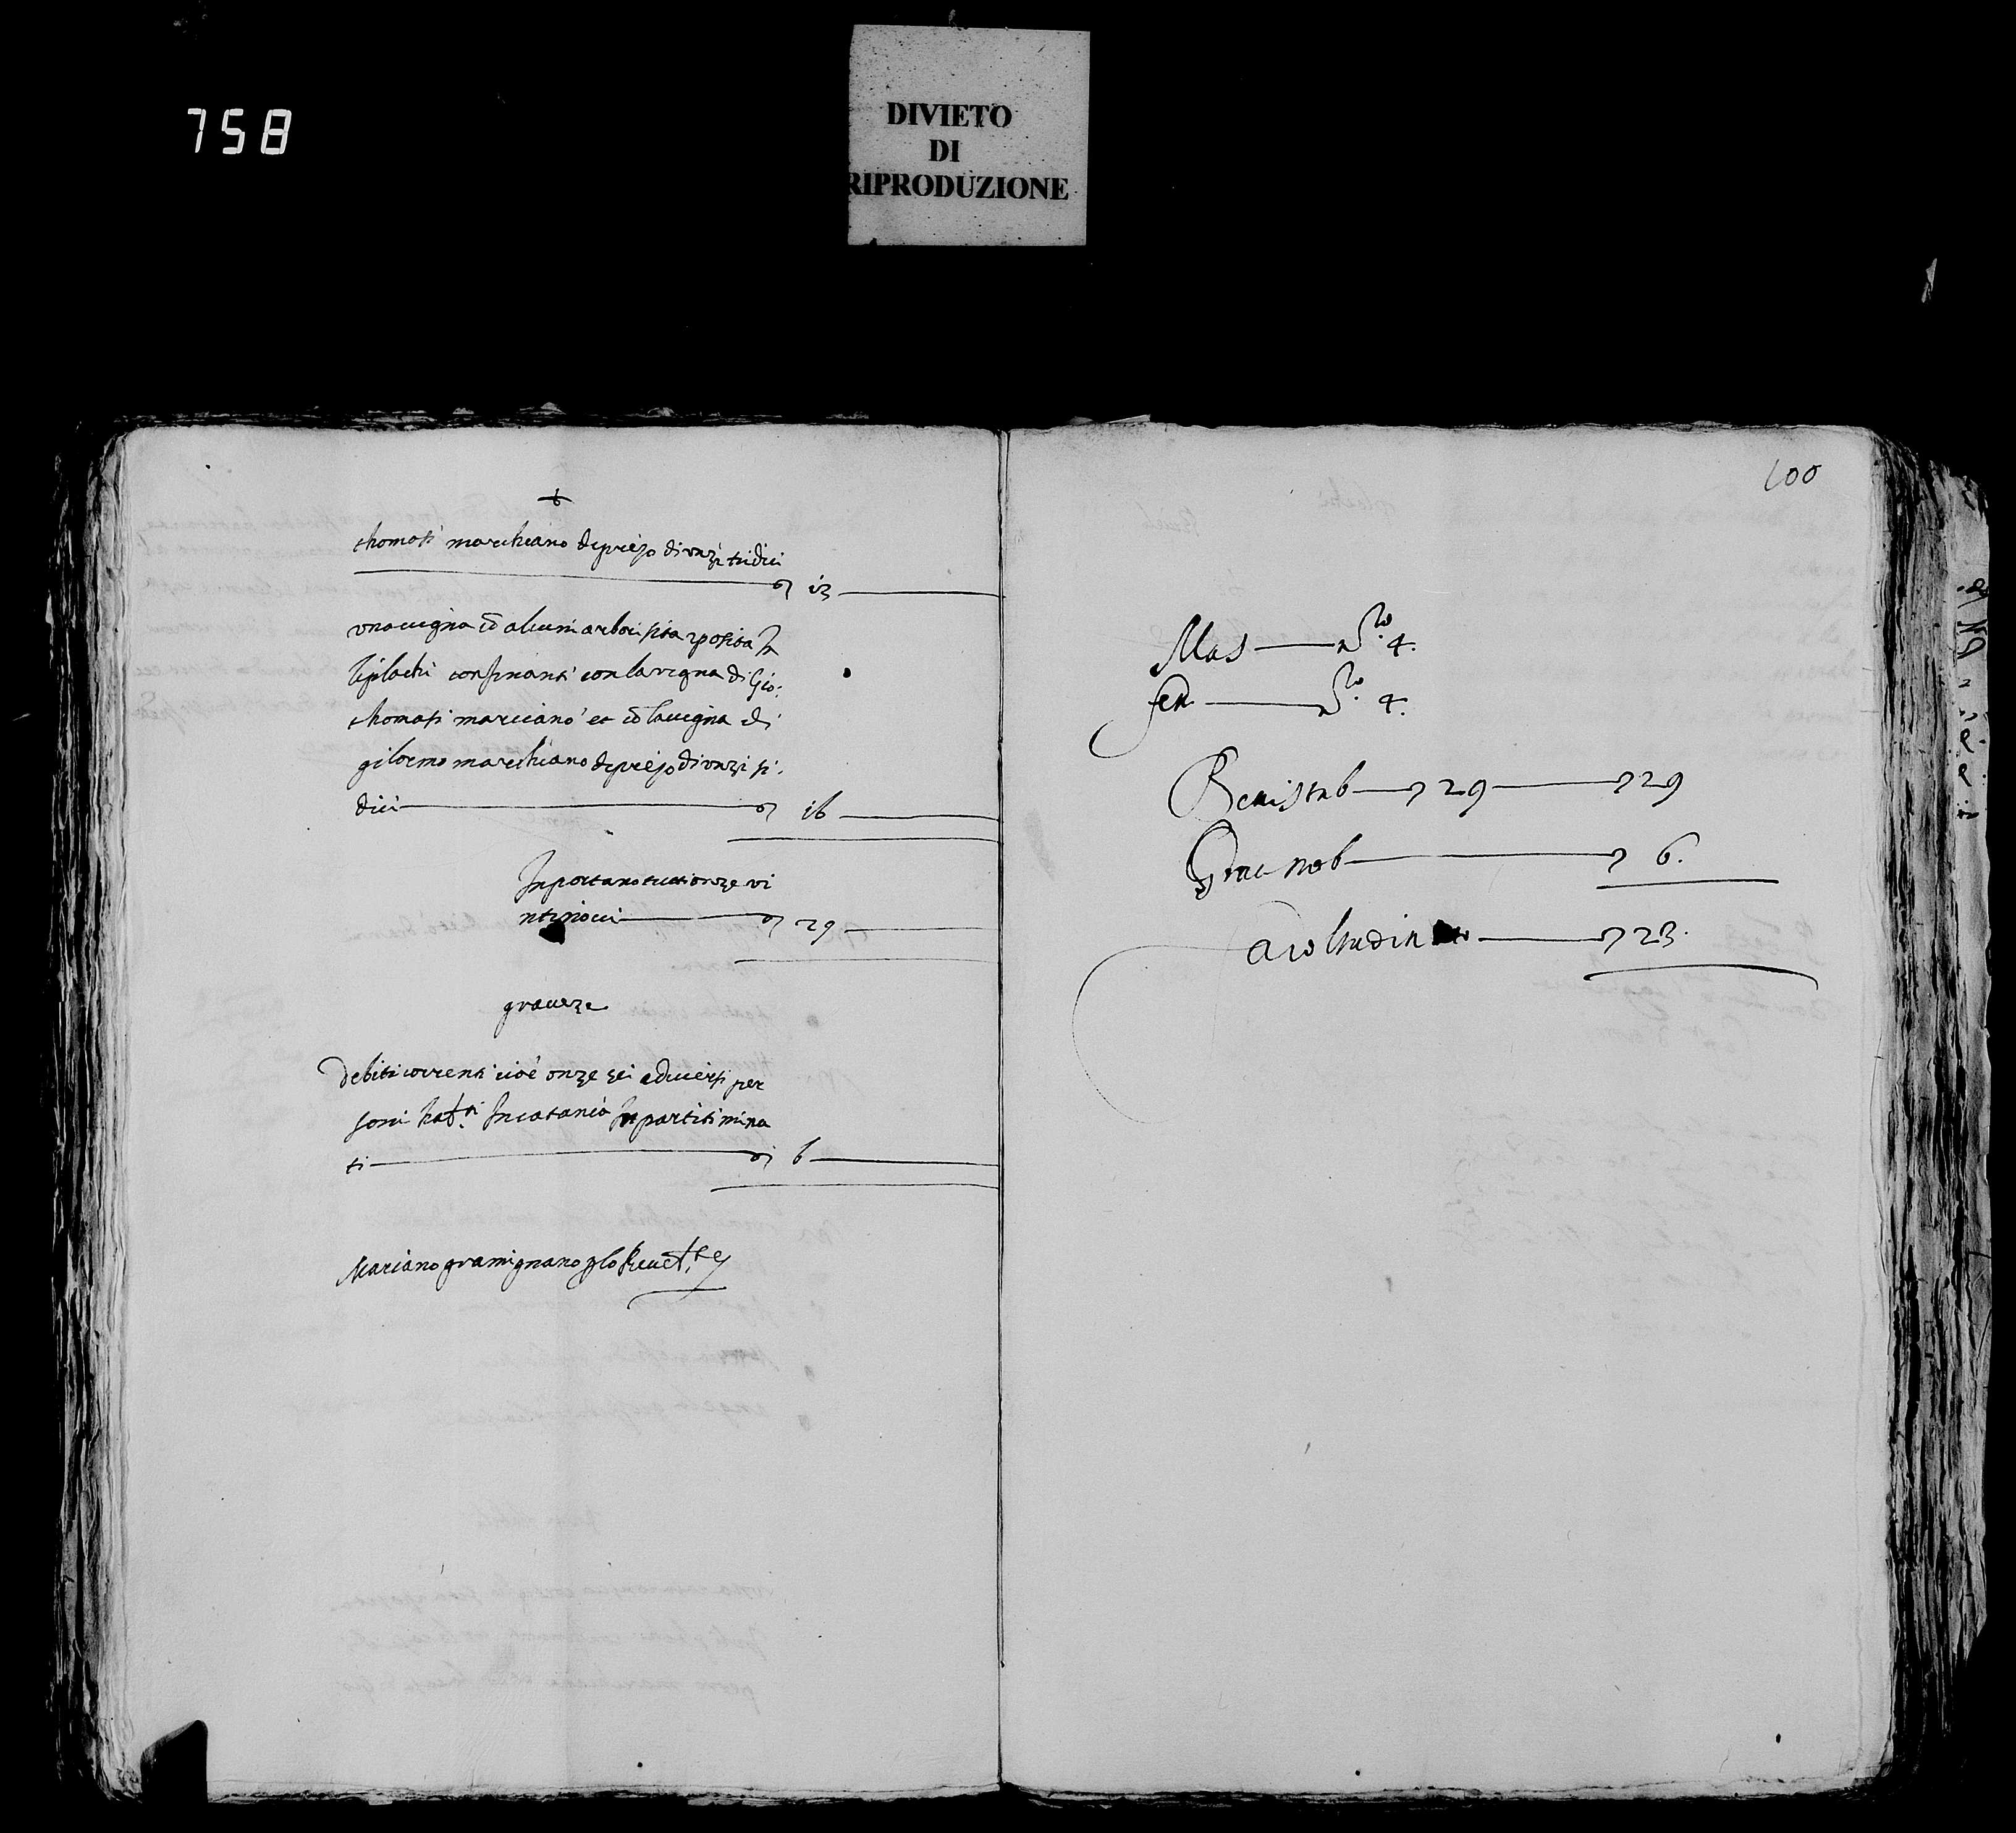 758
DIVIETO
DI
RIPRODUZIONE
+
thomasi marchiano di prejo di unzi tridici
13
una vigna cō alcuni arbori sita et posita In
confinanti con la vigna di Gio:
thomasi marciano et cō la vigna di
gilormo marchiano di prejo di unzi si-
dici 16
Inportano tutti onze vi
29
graveze
debiti correnti cioè onze sei a diversi per
soni In catania In partiti mina
ti 6
Mariano gramignano
100
Mas 4.
fem 4.
Beni stab 29 29
Grau 6.
23.